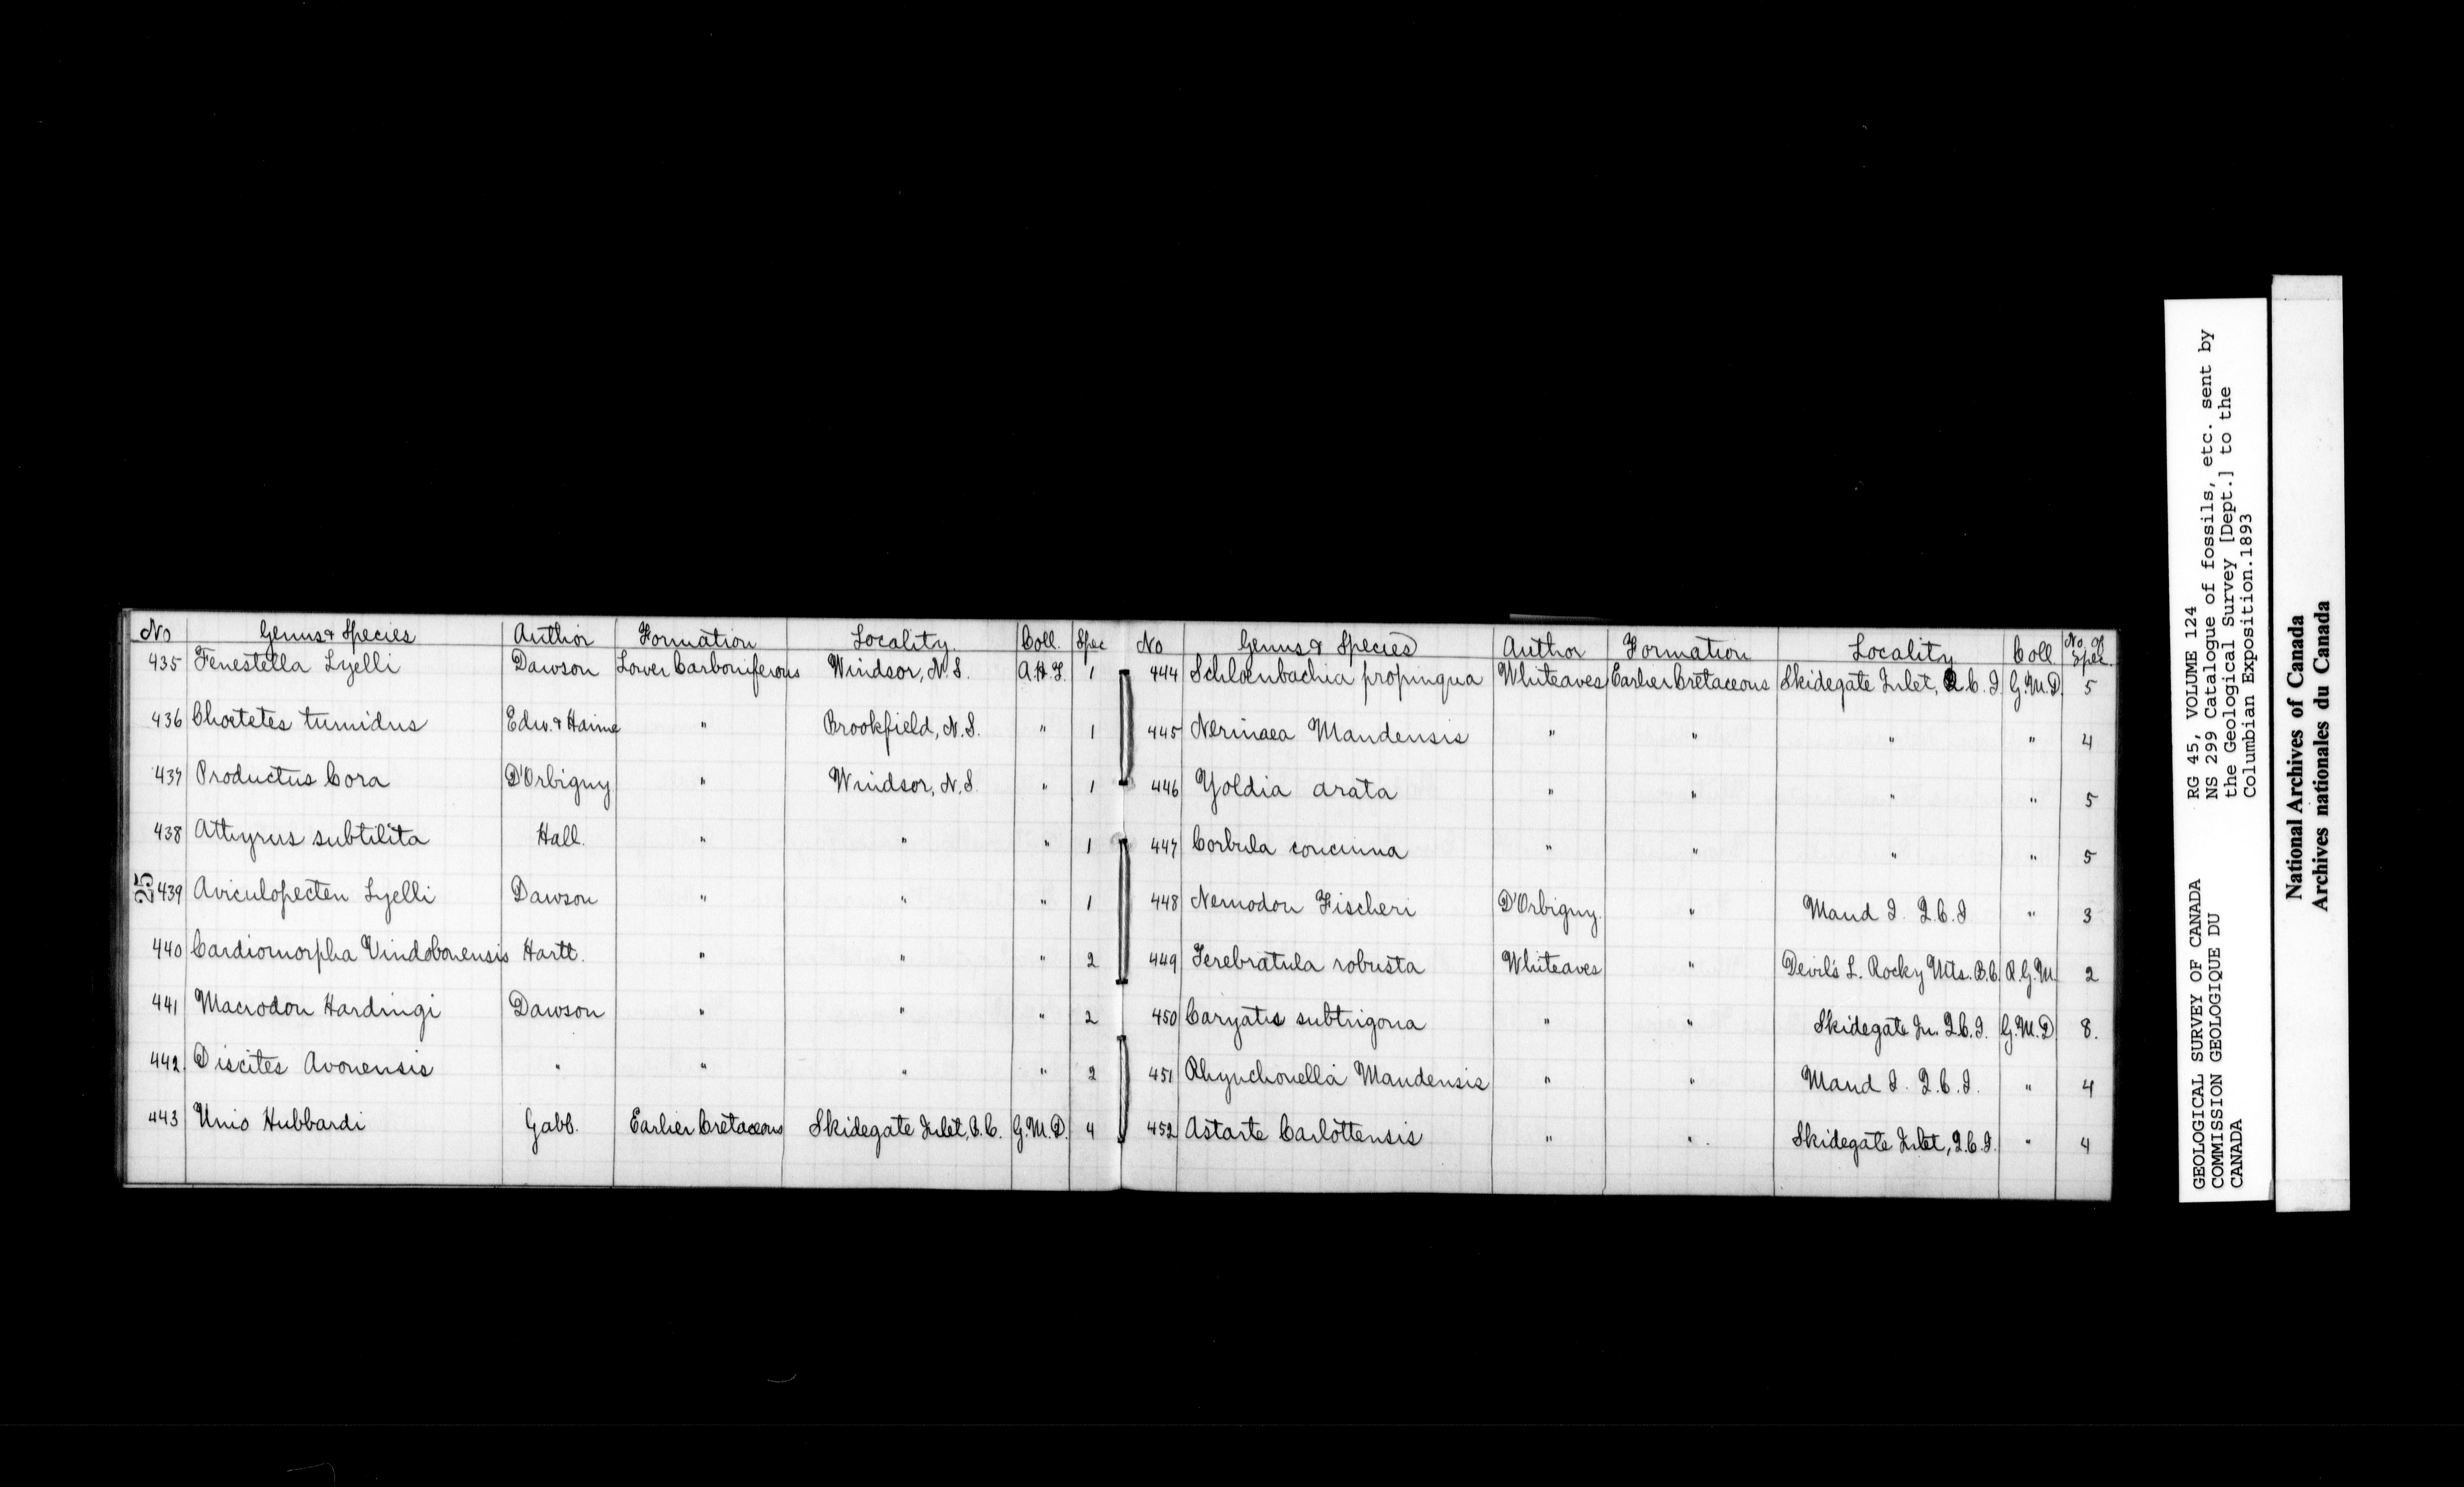 No Genus & Species Author Formation Locality. Coll. Spec
435 Fenestella Lyelli Dawson Lower Carboniferous Windsor, N.S. A.H.F. 1
436 Choetetes tumidus Edw. & Haime " Brookfield, N.S. " 1
437 Productus Cora D'Orbigny " Windsor, N.S. " 1
438 Athyrus subtilita Hall. " " " 1
25
439 Aviculopecten Lyelli Dawson " " " 1
440 Cardiomorpha Vindobonensis Hartt. " " " 2
441 Macrodon Hardingi Dawson " " " 2
442. Discites Avonensis " " " " 2
443 Unio Hubbardi Gabb. Earlier Cretaceous Skidegate Inlet, B.C. G.M.D. 4
No Genus & Species Author Formation Locality Coll No. of Spec.
444 Schloenbachia propinqua Whiteaves Earlier Cretaceous Skidegate Inlet, Q.C.I. G.M.D. 5
445 Nerinaea Maudensis " " " " 4
446 Yoldia arata " " " " 5
447 Corbula concinna " " " " 5
448 Nemodon Fischeri D'Orbigny. " Maud I. Q.C.I " 3
449 Terebratula robusta Whiteaves " Devil's L. Rocky Mts. B.C. R.G.M. 2
450 Caryatis subtrigona " " Skidegate In. Q.C.I. G.M.D. 8.
451 Rhynchonella Maudensis " " Maud I. Q.C.I. " 4
452 Astarte Carlottensis " " Skidegate Inlet, Q.C.I. " 4
GEOLOGICAL SURVEY OF CANADA
COMMISSION GEOLOGIQUE DU
CANADA
RG 45, VOLUME 124
NS 299 Catalogue of fossils, etc. sent by
the Geological Survey [Dept.] to the
Columbian Exposition.1893
National Archives of Canada
Archives nationales du Canada